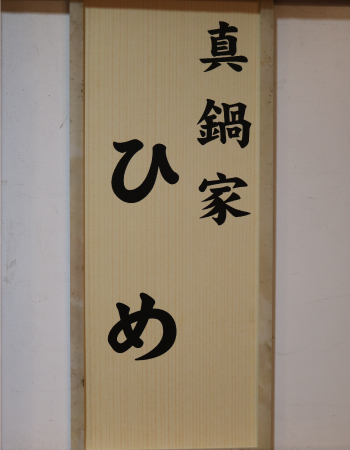 真鍋家
ひめ